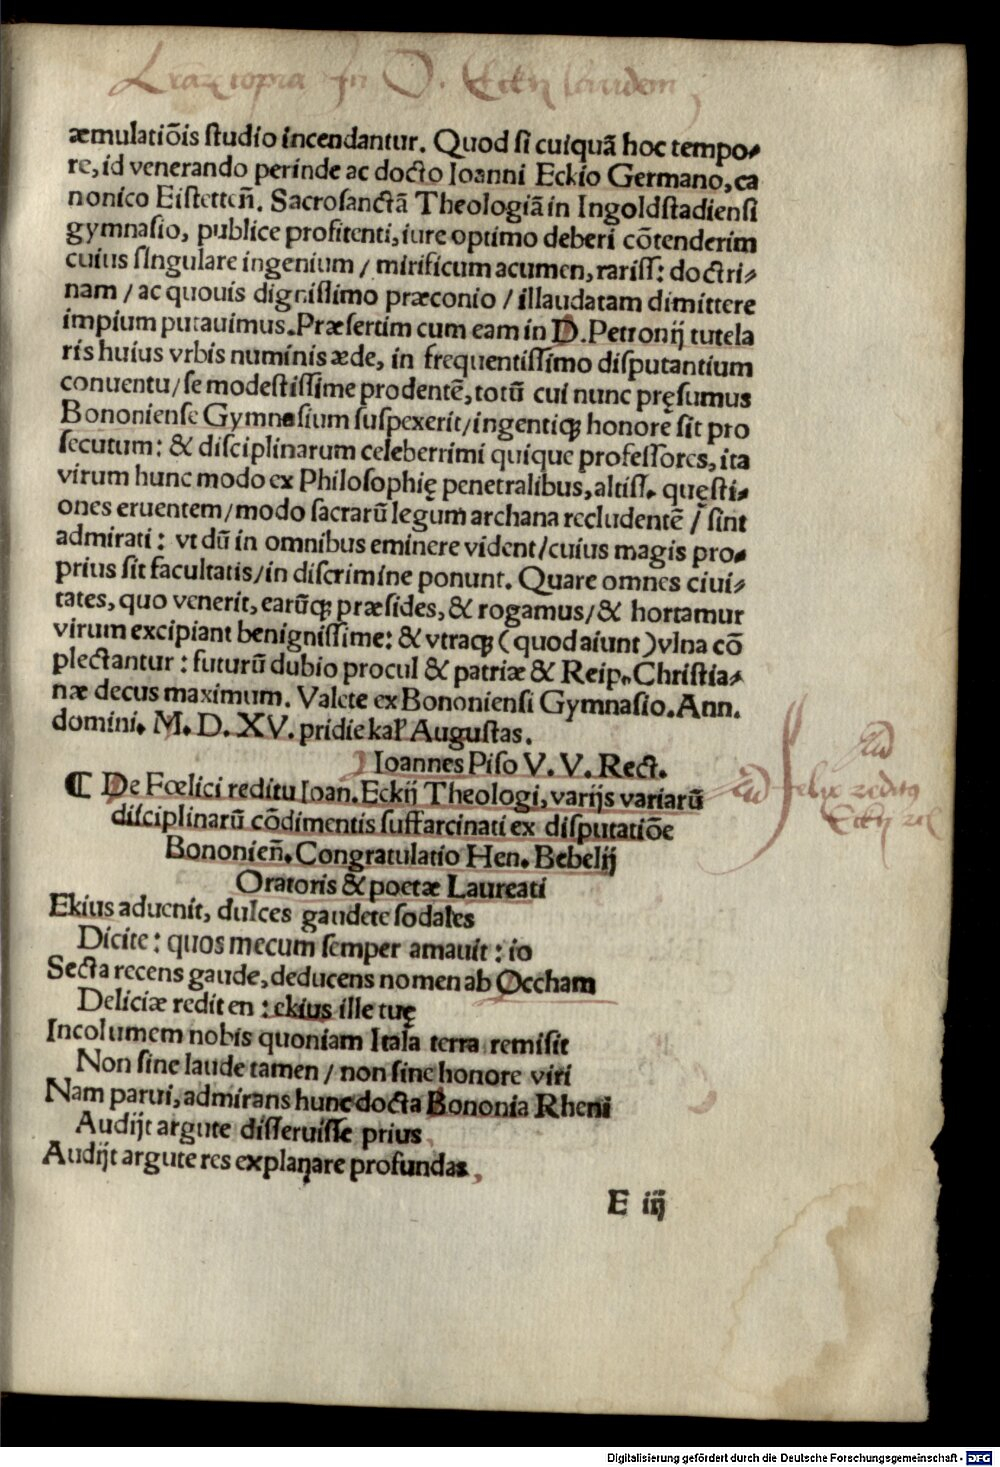 In D. Eckij laudem
æmulatiõis studio incendantur. Quod si cuiquã hoc tempo⸗
re, id venerando perinde ac docto Ioanni Eckio Germano, ca
nonico Eistetteñ. Sacrosanctã Theologiã in Ingoldstadiensi
gymnasio, publice profitenti, iure optimo deberi cõtenderim
cuius singulare ingenium / mirificum acumen, rariss: doctri⸗
nam / ac quouis dignissimo præconio / illaudatam dimittere
impium putauimus. Præsertim cum eam in D. Petronij tutela
ris huius vrbis numinis æde, in frequentissimo disputantium
conuentu / se modestissime prodentẽ, totũ cui nunc pręsumus
Bononiense Gymnasium suspexerit / ingentiqꝫ honore sit pro
secutum: & disciplinarum celeberrimi quique professores, ita
virum hunc modo ex Philosophię penetralibus, altiss. quęsti⸗
ones eruentem / modo sacrarũ legum archana recludentẽ / sint
admirati: vt dũ in omnibus eminere vident / cuius magis pro⸗
prius sit facultatis / in discrimine ponunt. Quare omnes ciui⸗
tates, quo venerit, earũqꝫ præsides, & rogamus / & hortamur
virum excipiant benignissime: & vtraqꝫ (quod aiunt) vlna cõ
plectantur: futurũ dubio procul & patriæ & Reip. Christia⸗
næ decus maximum. Valete ex Bononiensi Gymnasio. Ann.
domini. M. D. XV. pridie kał Augustas.
Ioannes Piso V. V. Rect.
¶ De Fœlici reditu Ioan. Eckij Theologi, varijs variarũ
disciplinarũ cõdimentis suffarcinati ex disputatiõe
Bononieñ. Congratulatio Hen. Bebelij
Oratoris & poetæ Laureati
Ekius aduenit, dulces gaudete sodales
Dicite: quos mecum semper amauit: io
Secta recens gaude, deducens nomen ab Occham
Deliciæ redit en: ekius ille tuę
Incolumem nobis quoniam Itala terra remisit
Non sine laude tamen / non sine honore viri
Nam parui, admirans hunc docta Bononia Rheni
Audijt argute disseruisse prius
Audijt argute res explanare profundas,
E iij
Digitalisierung gefördert durch die Deutsche Forschungsgemeinschaft - DFG